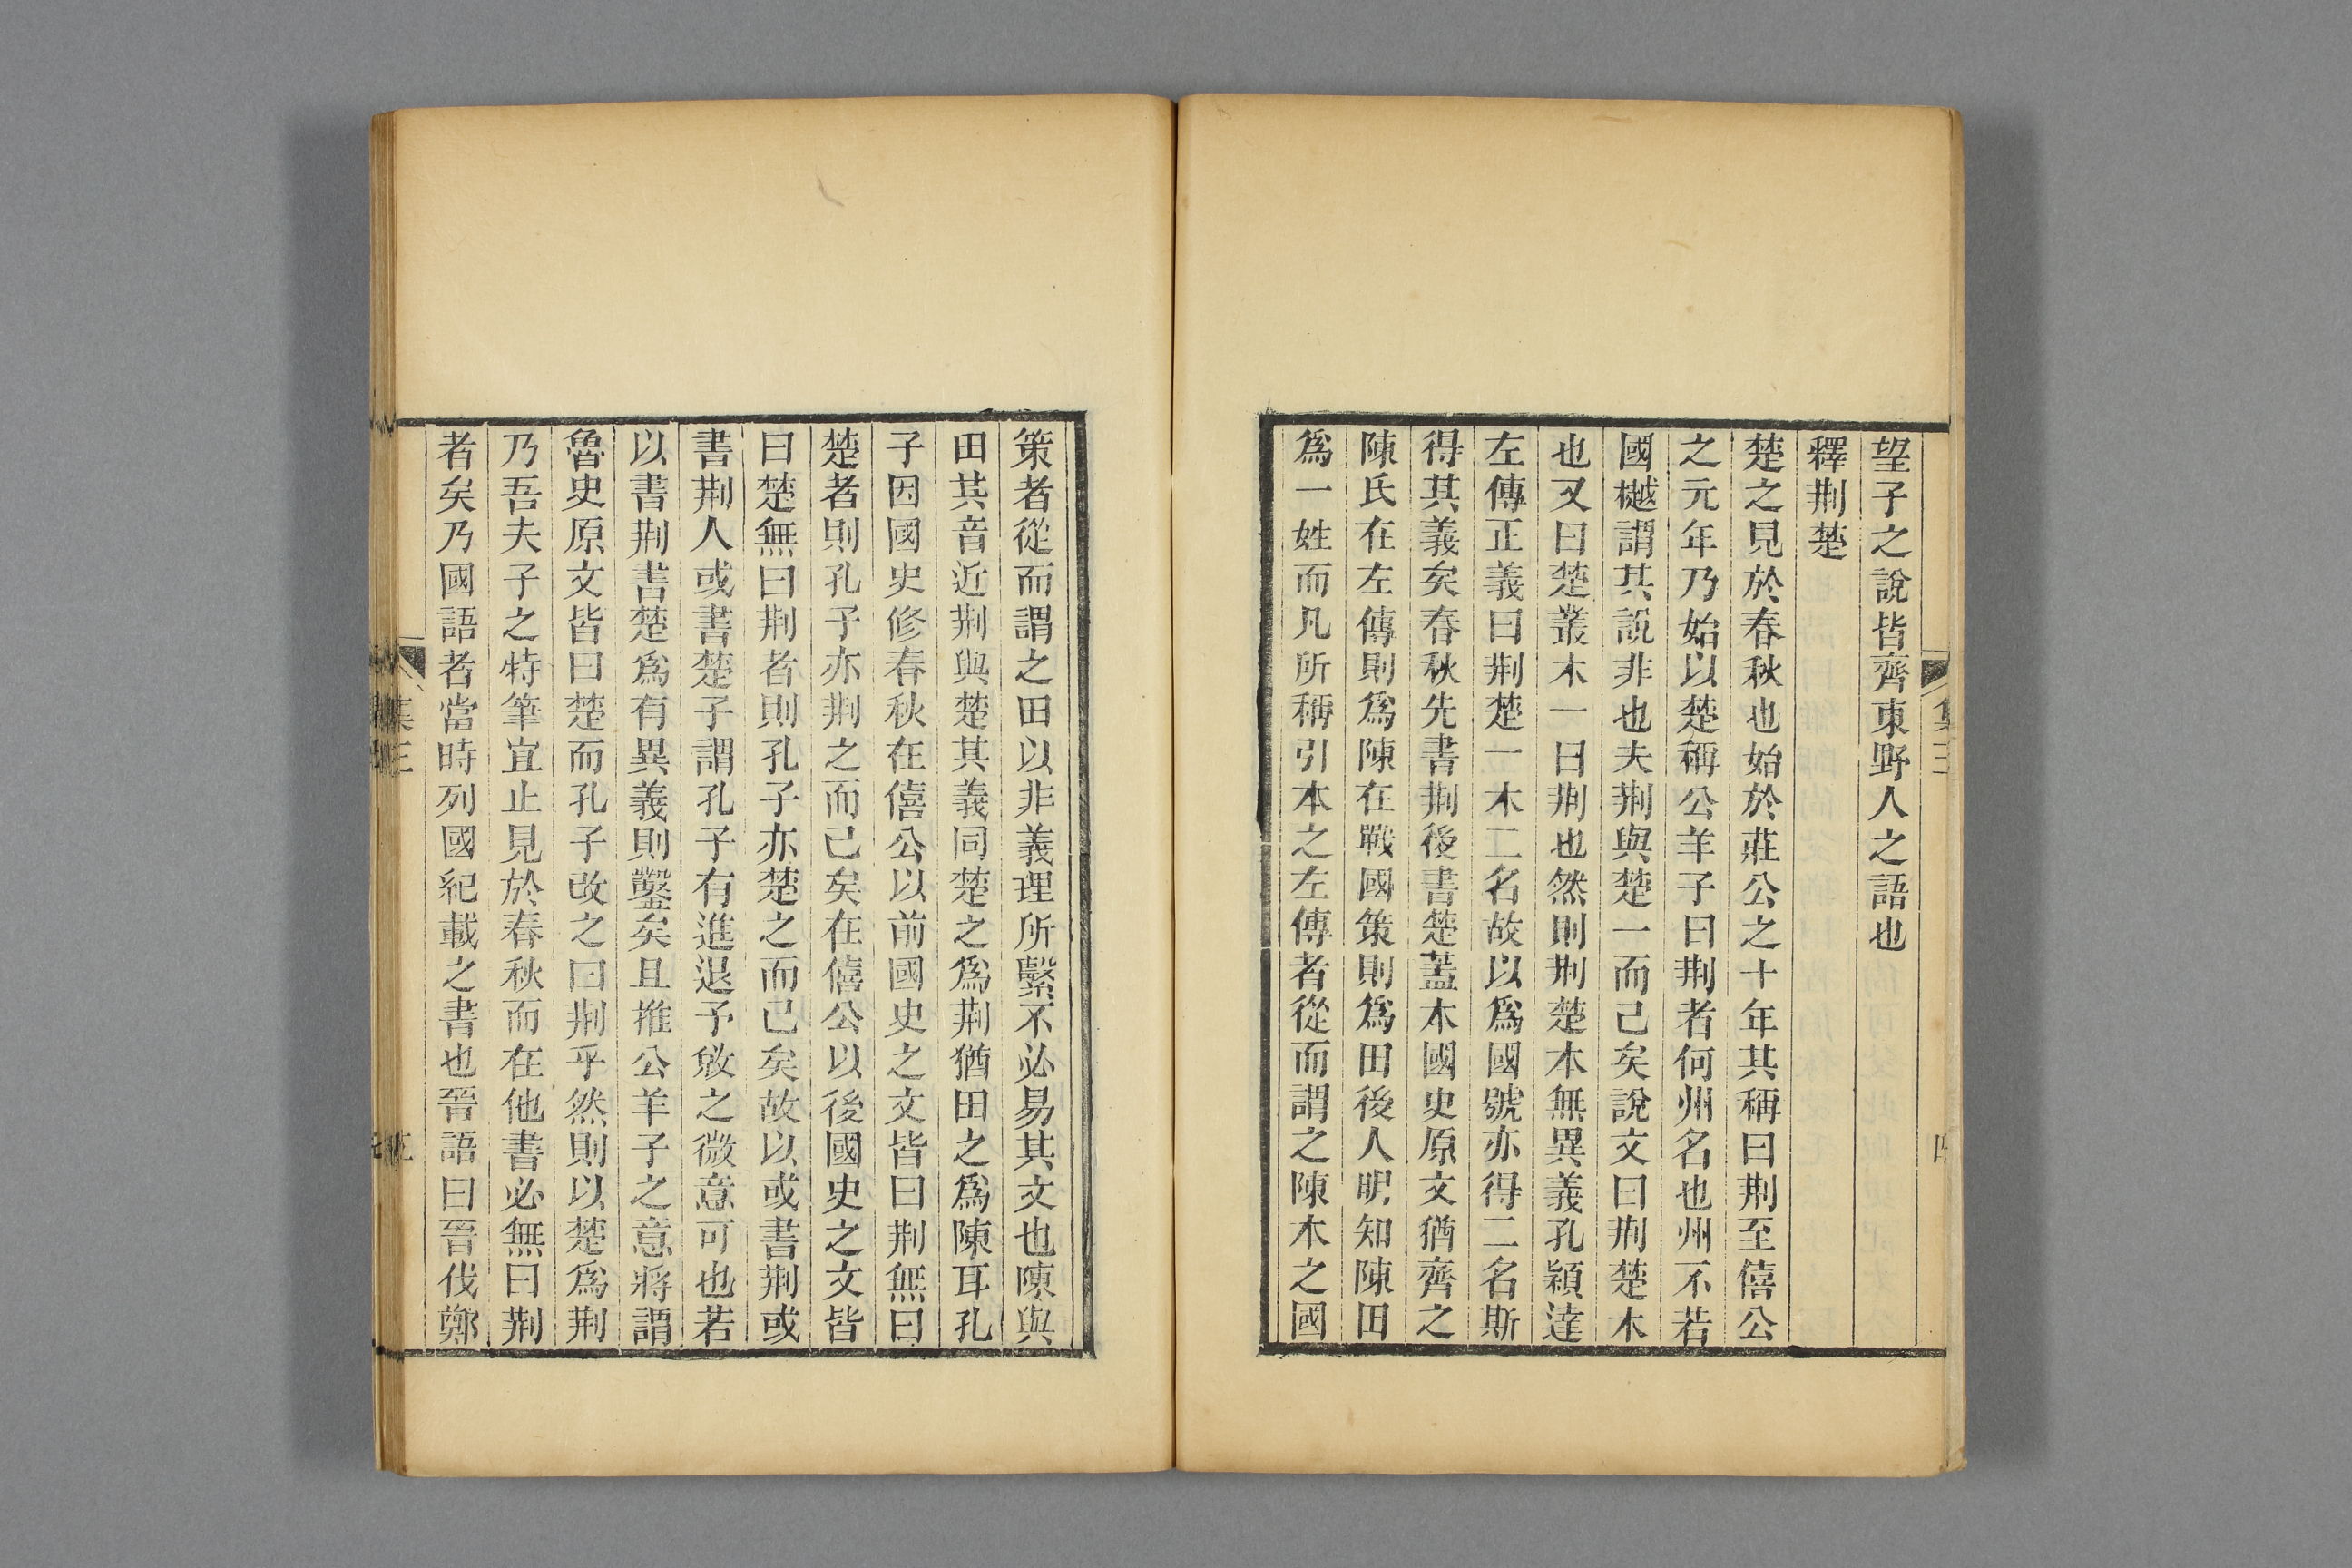 望子之說皆齊東野人之語也
釋荆楚
楚之見於春秋也始於莊公之十年其稱曰荆至僖公
之元年乃始以楚稱公羊子曰荆者何州名也州不若
國樾謂其說非也夫荆與楚一而已矣說文曰荆楚木
也又曰楚叢木一曰荆也然則荆楚本無異義孔穎達
左傳正義曰荆楚一木二名故以爲國號亦得二名斯
得其義矣春秋先書荆後書楚蓋本國史原文猶齊之
陳氏在左傳則爲陳在戰國策則爲田後人明知陳田
爲一姓而凡所稱引本之左傳者從而謂之陳本之國
策者從而謂之田以非義理所繫不必易其文也陳與
田其音近荆與楚其義同楚之爲荆猶田之爲陳耳孔
子因國史修春秋在僖公以前國史之文皆曰荆無曰
楚者則孔子亦荆之而已矣在僖公以後國史之文皆
曰楚無曰荆者則孔子亦楚之而已矣故以或書荆或
書荆人或書楚子謂孔子有進退予敓之微意可也若
以書荆書楚爲有異義則鑿矣且推公羊子之意將謂
魯史原文皆曰楚而孔子改之曰荆乎然則以楚爲荆
乃吾夫子之特筆宜止見於春秋而在他書必無曰荆
者矣乃國語者當時列國紀載之書也晉語曰晉伐鄭
集三